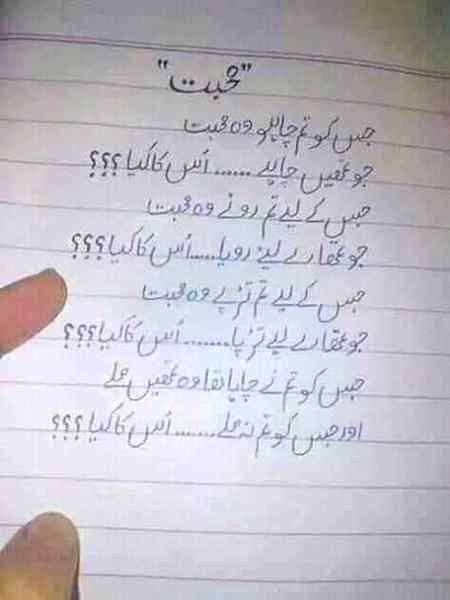 "محبت"
جس کو تم چاہو وہ محبت
جو تمھیں چاہے ...... اُس کا کیا ؟؟؟
جس کے لیے تم روئے وہ محبت
جو تمھارے لیے رویا......اُس کا کیا؟؟؟
جس کے لیے تم تڑپے وہ محبت
جو تمھارے لیے تڑپا........اُس کا کیا؟؟؟
جس کو تم نے چاہا تھا وہ تمھیں ملے
اور جس کو تم نہ ملے....... اُس کا کیا؟؟؟